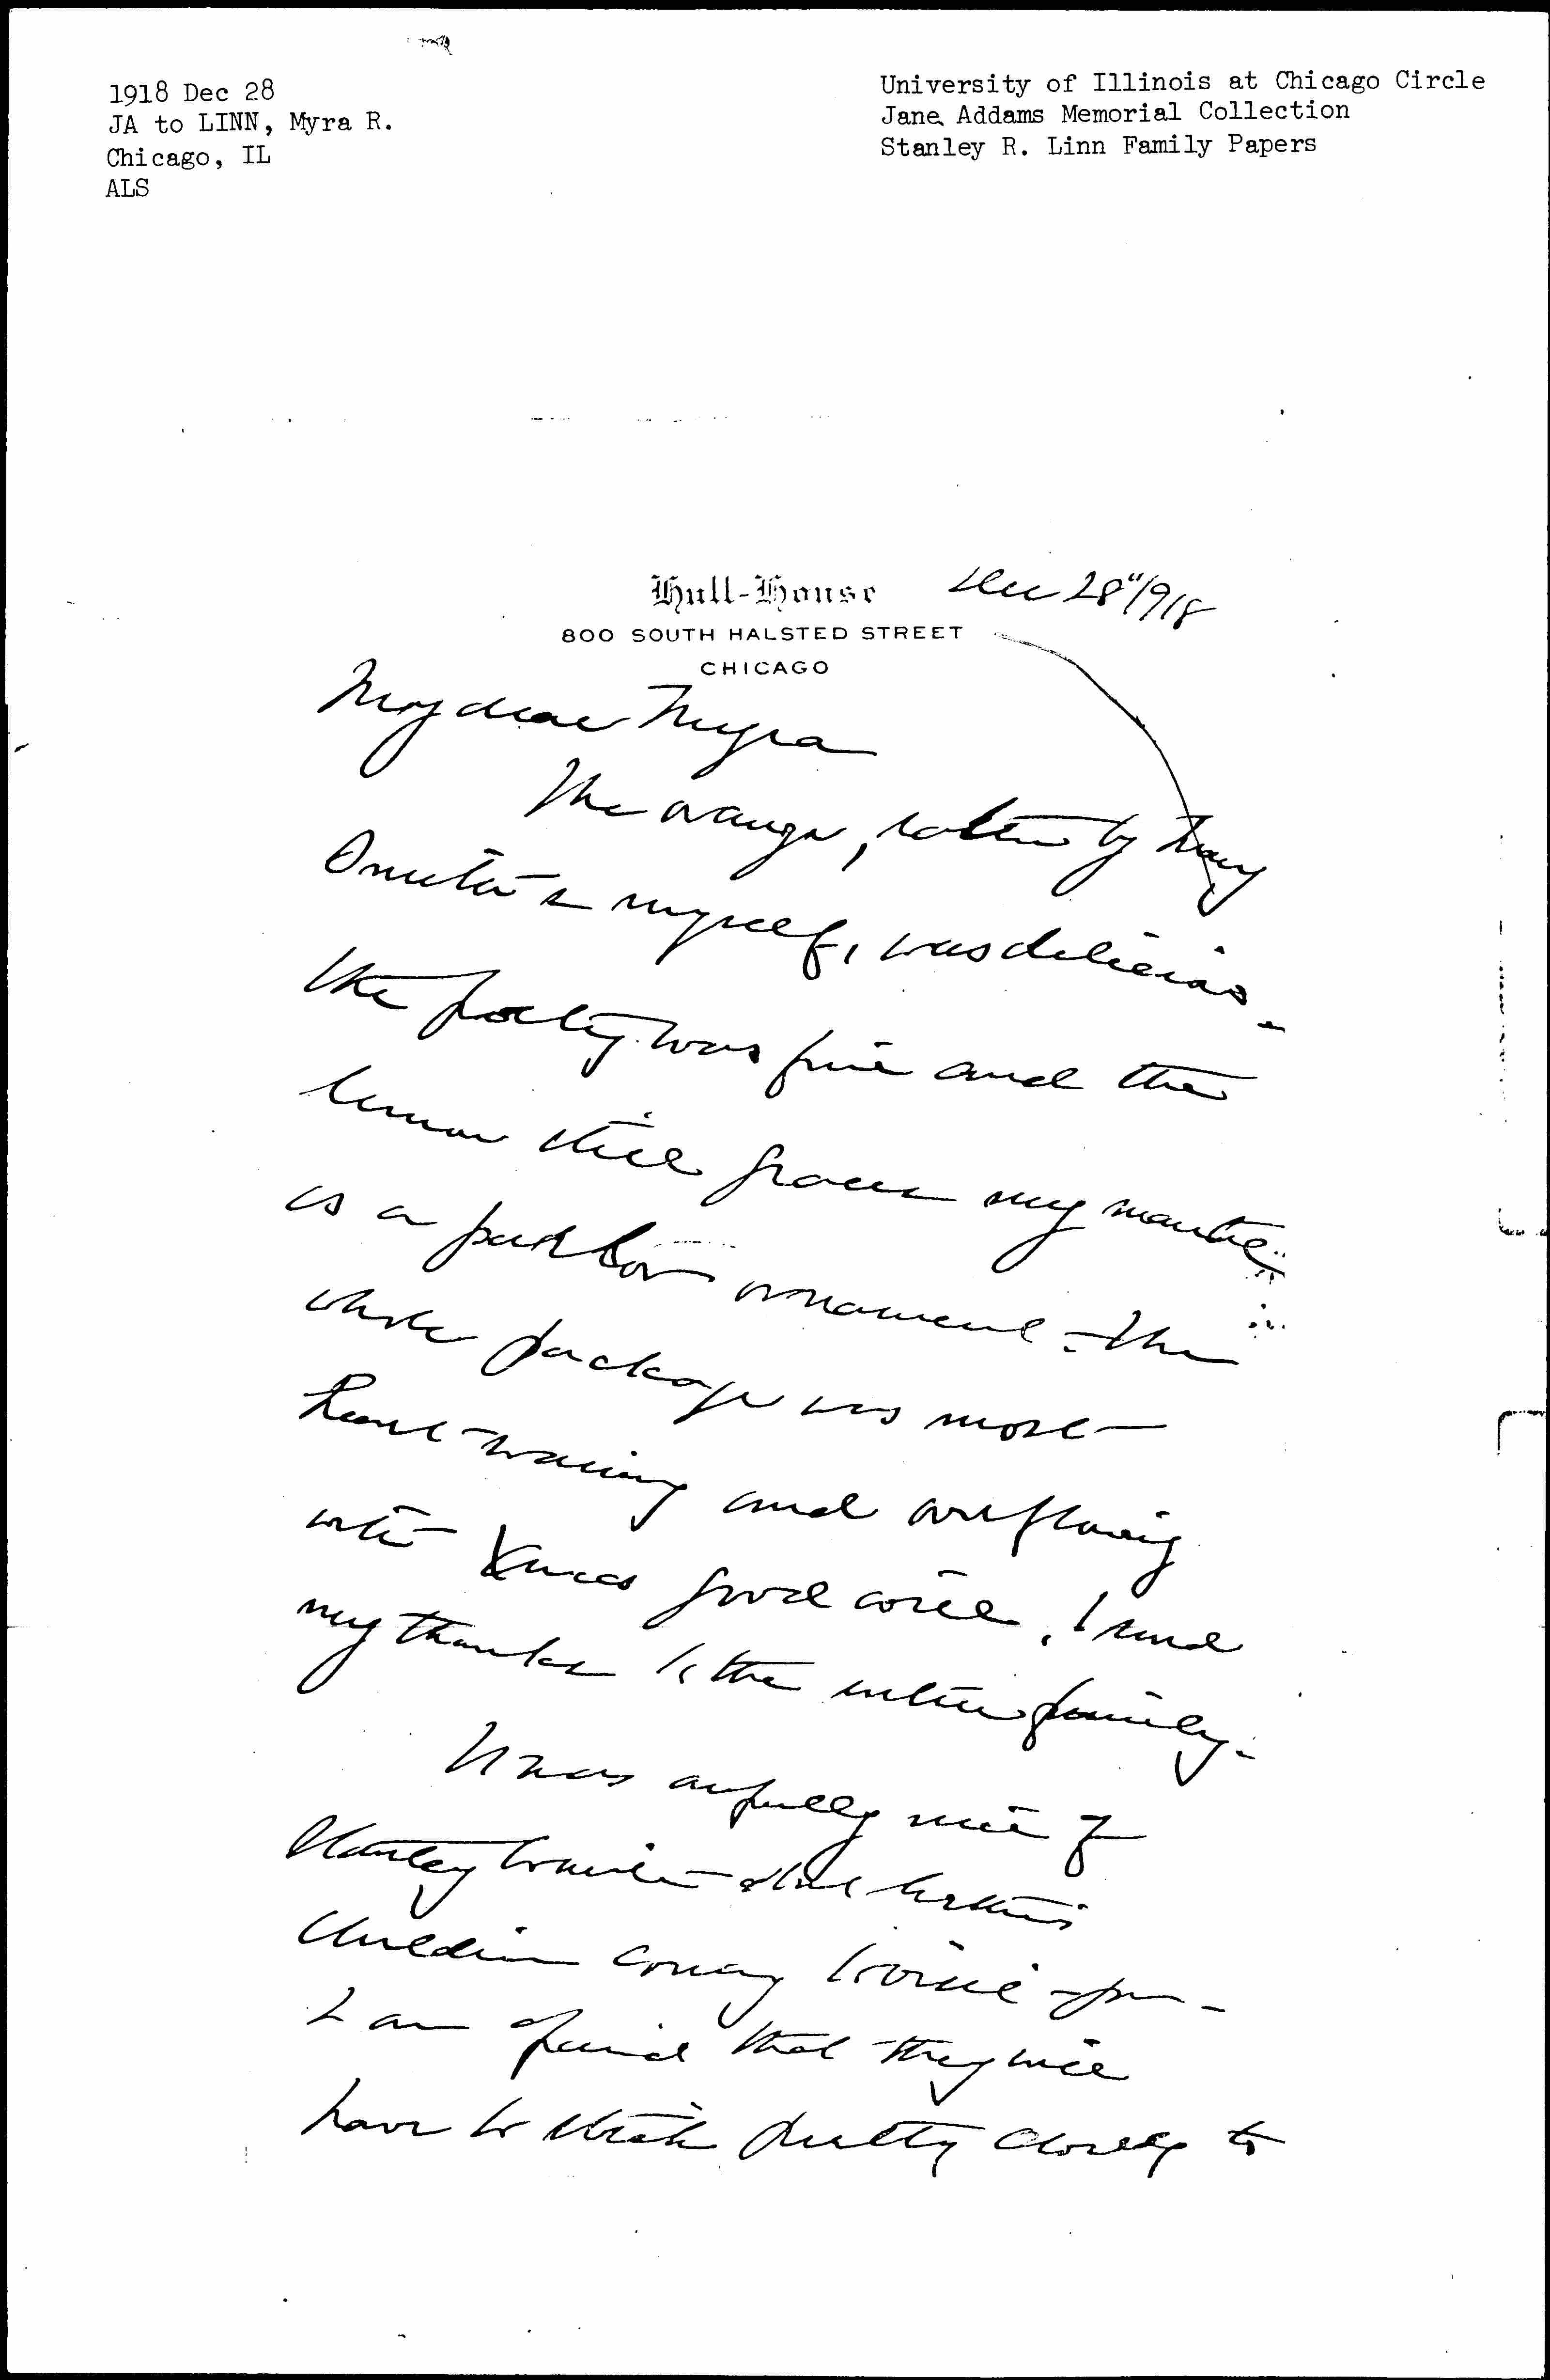 1918 Dec 28
JA to LINN, Myra R.
Chicago, IL
ALS
University of Illinois at Chicago Circle
Jane Addams Memorial Collection
Stanley R. Linn Family Papers
Hull-House
800 SOUTH HALSTED STREET
CHICAGO
Dec 28"1918
My dear Myra
The orange, eaten by Mary
Smith & myself, was delicious -
the was fine and the
lemon still graces my mantel
as a parlor ornament - the
whole package was most
heart-warming and overflowing
with Xmas good will. I send
my thanks to the entire family -
It was awfully nice of
Stanley to write about
children coming to for -
I am afraid that they will
have to stick pretty closely to